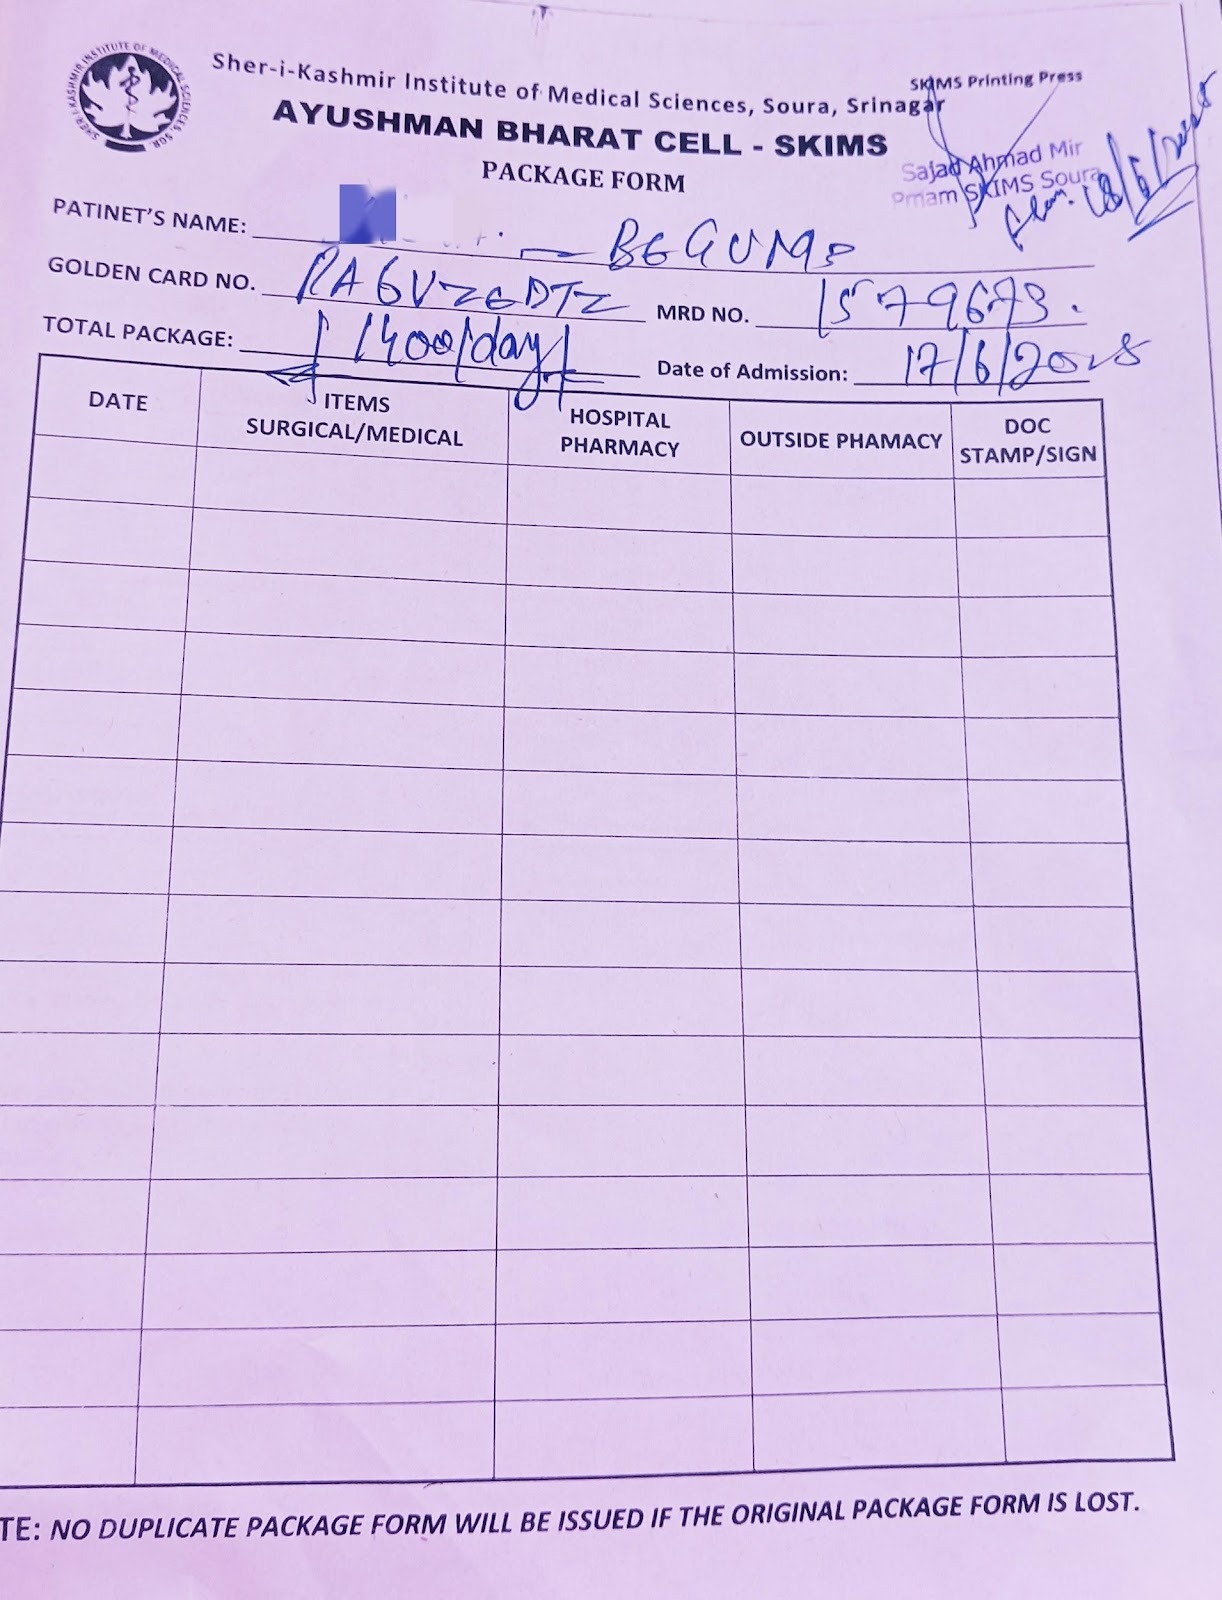 SHER-I-KASHMIR INSTITUTE OF MEDICAL SCIENCES SGR.
Sher-i-Kashmir Institute of Medical Sciences, Soura, Srinagar
SKIMS Printing Press
AYUSHMAN BHARAT CELL - SKIMS
PACKAGE FORM
Sajad Ahmad Mir
Pmam SKIMS Soura
18/6/2025
PATINET'S NAME: BEGUM
GOLDEN CARD NO. PA6VZGDTZ MRD NO. 1579673.
TOTAL PACKAGE: 1400/day Date of Admission: 17/6/2025
DATE ITEMS SURGICAL/MEDICAL HOSPITAL PHARMACY OUTSIDE PHAMACY DOC STAMP/SIGN
TE: NO DUPLICATE PACKAGE FORM WILL BE ISSUED IF THE ORIGINAL PACKAGE FORM IS LOST.